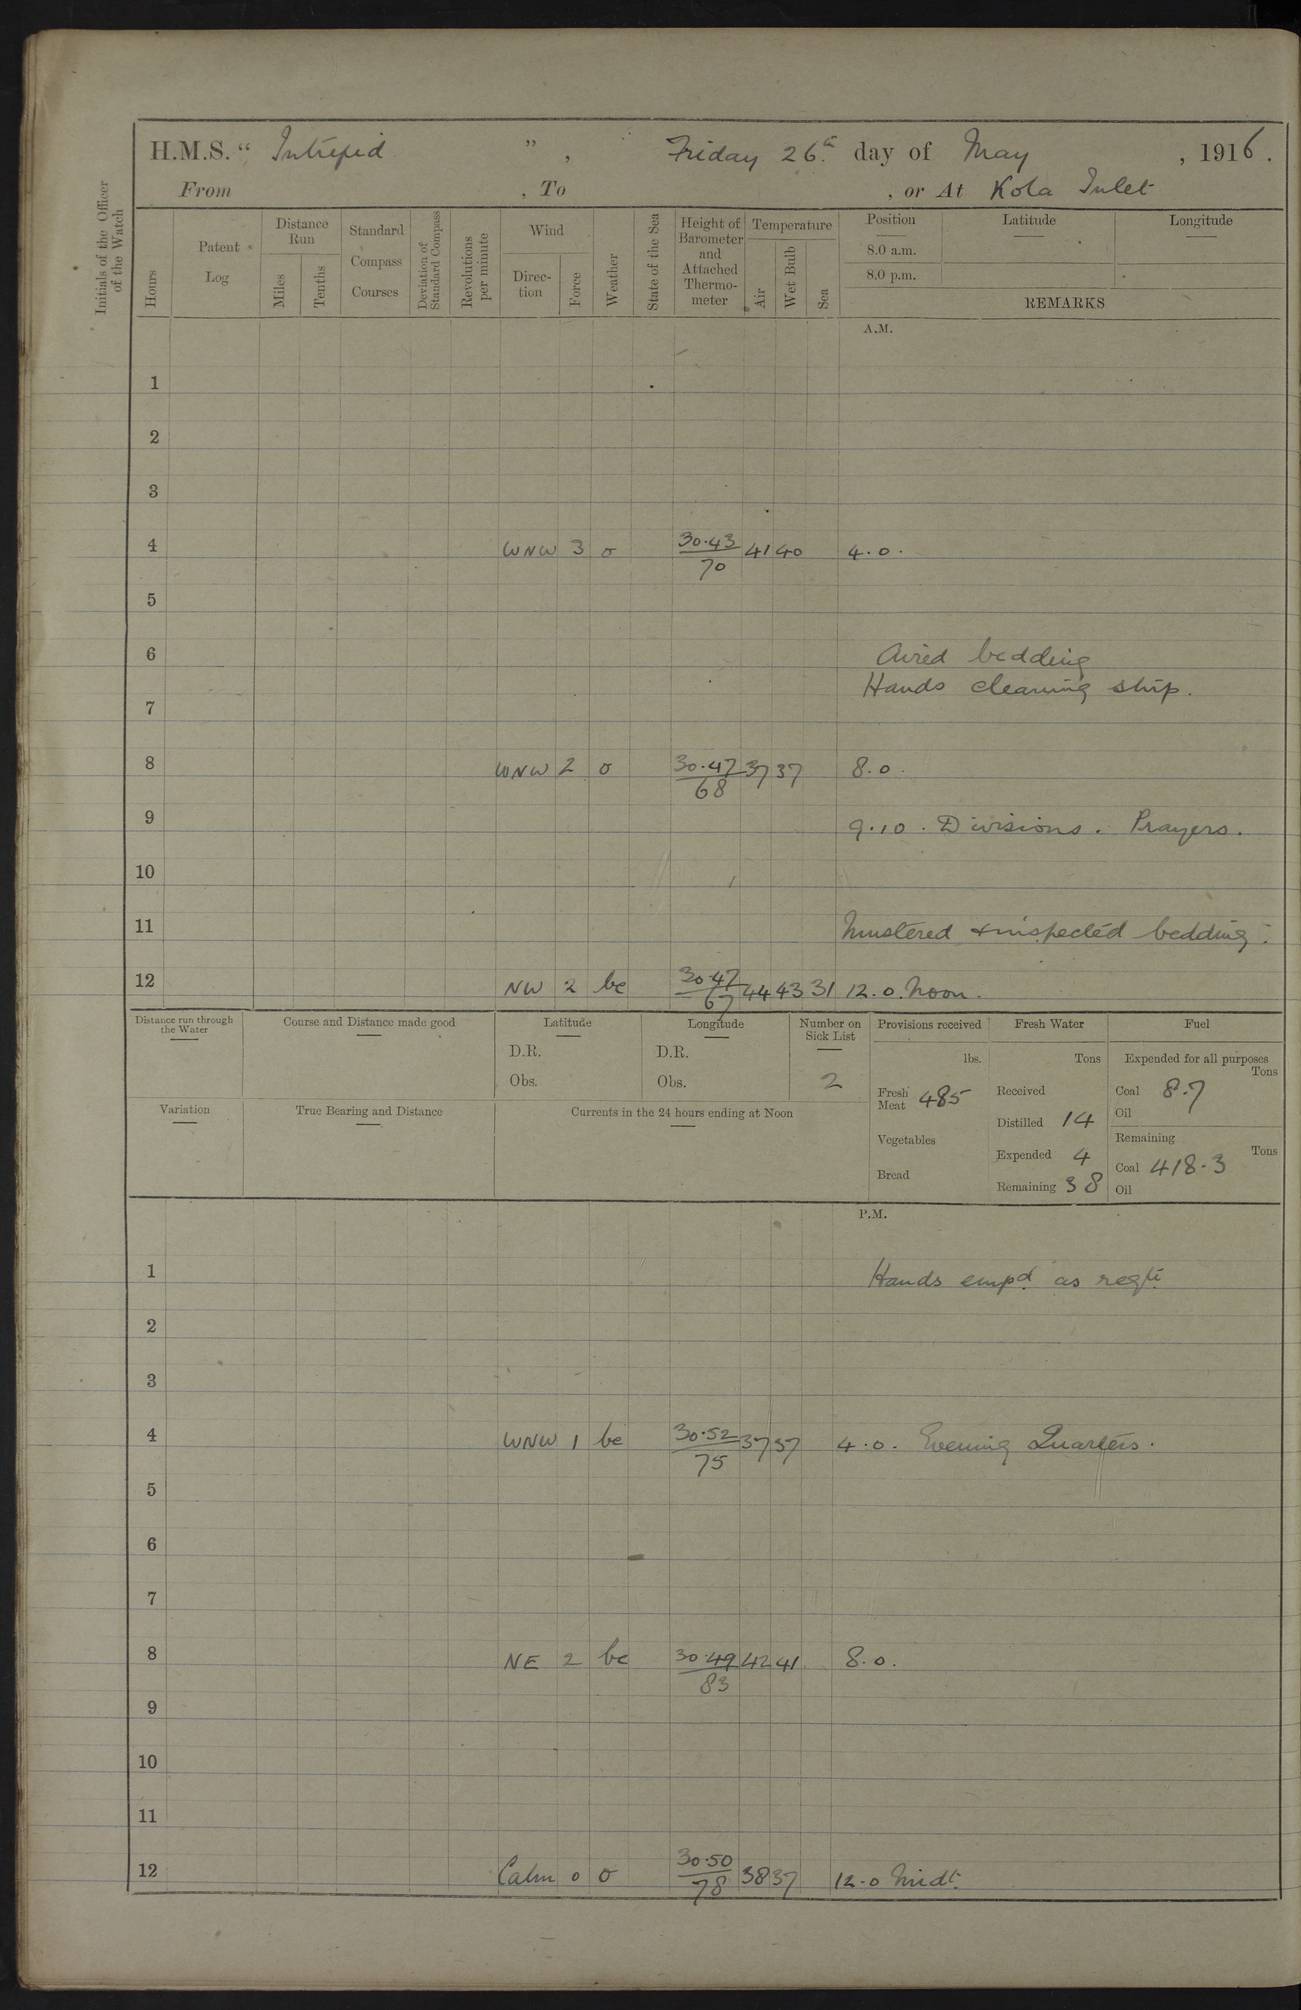 H.M.S. " Intrepid ", Friday 26th day of May, 1916.
From , To , or At Kola Inlet
Initials of the Officer of the Watch
Hours
Patent Log
Distance Run
Miles
Tenths
Standard Compass Courses
Deviation of Standard Compass
Revolutions per minute
Wind
Direction
Force
Weather
State of the Sea
Height of Barometer and Attached Thermometer
Temperature
Air
Wet Bulb
Sea
Position
8.0 a.m.
8.0 p.m.
Latitude
Longitude
REMARKS
A.M.
1
2
3
4 WNW 3 o 30.43/70 41 40 4.0.
5
6 Aired bedding
Hands cleaning ship.
7
8 WNW 2 o 30.47/68 37 37 8.0.
9 9.10. Divisions. Prayers.
10
11 Mustered & inspected bedding.
12 NW 2 bc 30.47/67 44 43 31 12.0. Noon.
Distance run through the Water
Course and Distance made good
Latitude
D.R.
Obs.
Longitude
D.R.
Obs.
Number on Sick List
2
Provisions received
lbs.
Fresh Meat 485
Vegetables
Bread
Fresh Water
Tons
Received
Distilled 14
Expended 4
Remaining 38
Fuel
Expended for all purposes
Tons
Coal 8.7
Oil
Remaining
Tons
Coal 418.3
Oil
Variation
True Bearing and Distance
Currents in the 24 hours ending at Noon
P.M.
1 Hands empd. as reqte.
2
3
4 WNW 1 bc 30.52/75 37 37 4.0. Evening Quarters.
5
6
7
8 NE 2 bc 30.49/83 42 41 8.0.
9
10
11
12 Calm 0 o 30.50/78 38 37 12.0 Midt.